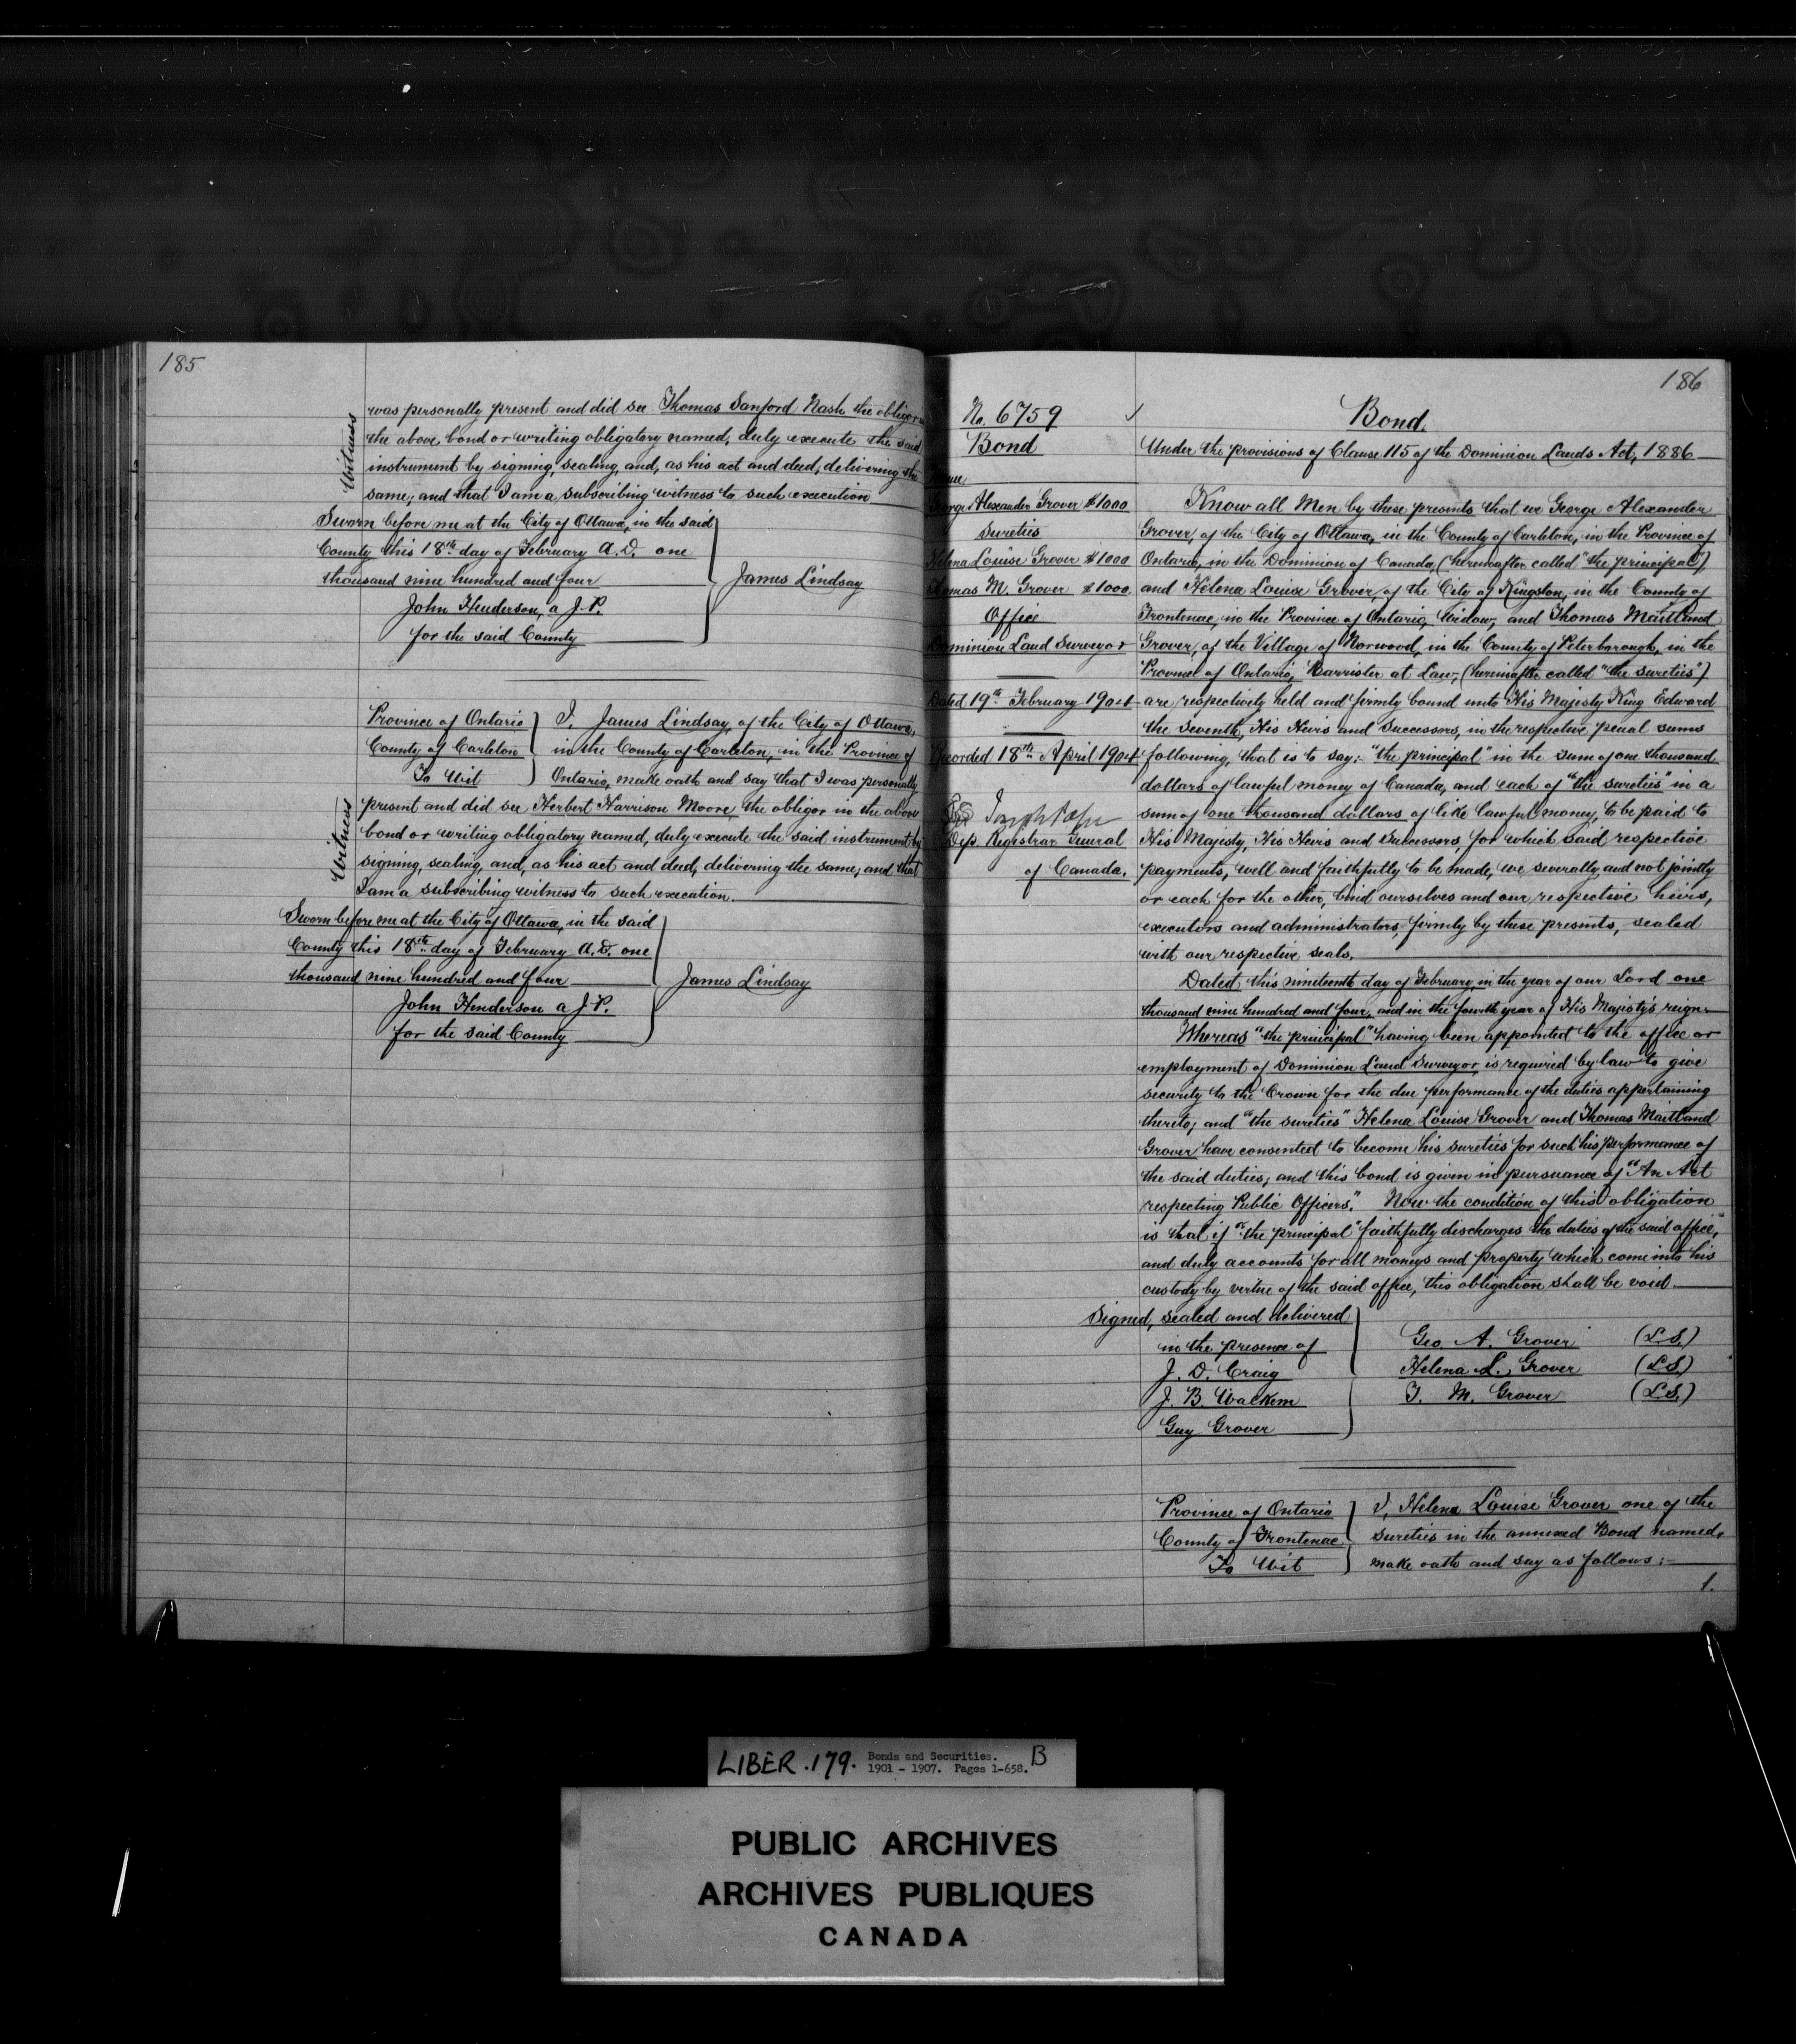 185
Witness
was personally present and did see Thomas Sanford Nash the obligor in
the above bond or writing obligatory named, duly execute the said
instrument by signing, sealing, and, as his act and deed, delivering the
same; and that I am a subscribing witness to such execution
Sworn before me at the City of Ottawa, in the said
County this 18th day of February A.D. one
thousand nine hundred and four
James Lindsay
John Henderson, a J.P.
for the said County
Province of Ontario
County of Carleton
To Wit
I, James Lindsay, of the City of Ottawa,
in the County of Carleton, in the Province of
Ontario, make oath and say that I was personally
Witness
present and did see Herbert Harrison Moore, the obligor in the above
bond or writing obligatory named, duly execute the said instrument by
signing, sealing, and, as his act and deed, delivering the same; and that
I am a subscribing witness to such execution.
Sworn before me at the City of Ottawa, in the said
County this 18th day of February A.D. one
thousand nine hundred and four
James Lindsay
John Henderson a J.P.
for the said County
186
No. 6759
Bond
George Alexander Grover $1000
Sureties
Helena Louise Grover $1000
Thomas M. Grover $1000
Office
Dominion Land Surveyor
Dated 19th February 1904
Recorded 18th April 1904
Dep. Registrar General
of Canada.
Bond
Under the provisions of Clause 115 of the Dominion Lands Act, 1886
Know all Men by these presents that we George Alexander
Grover, of the City of Ottawa, in the County of Carleton, in the Province of
Ontario, in the Dominion of Canada, (hereinafter called "the principal")
and Helena Louise Grover, of the City of Kingston, in the County of
Frontenac, in the Province of Ontario, Widow, and Thomas Maitland
Grover, of the Village of Norwood, in the County of Peterborough, in the
Province of Ontario, Barrister at Law, (hereinafter called "the sureties")
are respectively held and firmly bound unto His Majesty King Edward
the Seventh, His Heirs and Successors, in the respective penal sums
following, that is to say: "the principal" in the sum of one thousand
dollars of lawful money of Canada, and each of "the sureties" in a
sum of one thousand dollars of like lawful money, to be paid to
His Majesty, His Heirs and Successors, for which said respective
payments, well and faithfully to be made, we severally and not jointly
or each for the other, bind ourselves and our respective heirs,
executors and administrators, firmly by these presents, sealed
with our respective seals.
Dated this nineteenth day of February, in the year of our Lord one
thousand nine hundred and four, and in the fourth year of His Majesty's reign.
Whereas "the principal" having been appointed to the office or
employment of Dominion Land Surveyor, is required by law to give
security to the Crown for the due performance of the duties appertaining
thereto; and "the sureties" Helena Louise Grover and Thomas Maitland
Grover have consented to become his sureties for such his performance of
the said duties; and this bond is given in pursuance of "An Act
respecting Public Officers." Now the condition of this obligation
is that if "the principal" faithfully discharges the duties of the said office,
and duly accounts for all moneys and property which come into his
custody by virtue of the said office, this obligation shall be void
Signed, sealed and delivered
in the presence of
J. D. Craig
J. B. Walkem
Guy Grover
Geo A. Grover (L.S.)
Helena L. Grover (L.S.)
T. M. Grover (L.S.)
Province of Ontario
County of Frontenac
To Wit
I, Helena Louise Grover one of the
sureties in the annexed Bond named,
make oath and say as follows:
1.
LIBER. 179. Bonds and Securities. B
1901 - 1907. Pages 1-658.
PUBLIC ARCHIVES
ARCHIVES PUBLIQUES
CANADA